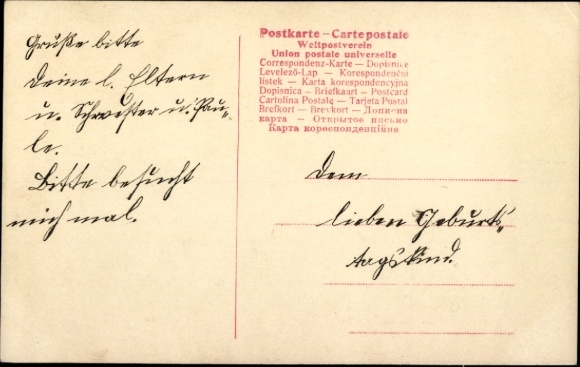 Grüße bitte
Deine l. Eltern
u. Schwester u. Pau-
le.
Bitte besucht
mich mal.
Postkarte – Carte postale
Weltpostverein
Union postale universelle
Correspondenz-Karte – Dopisnice
Levelező-Lap — Korespondenční
listek – Karta korespondencyjna
Dopisnica – Briefkaart – Postcard
Cartolina Postale – Tarjeta Postal
Brefkort – Brevkort – Дописна
карта — Открытое письмо
Карта кореспонденційна
Dem
lieben Geburts-
tagskind.